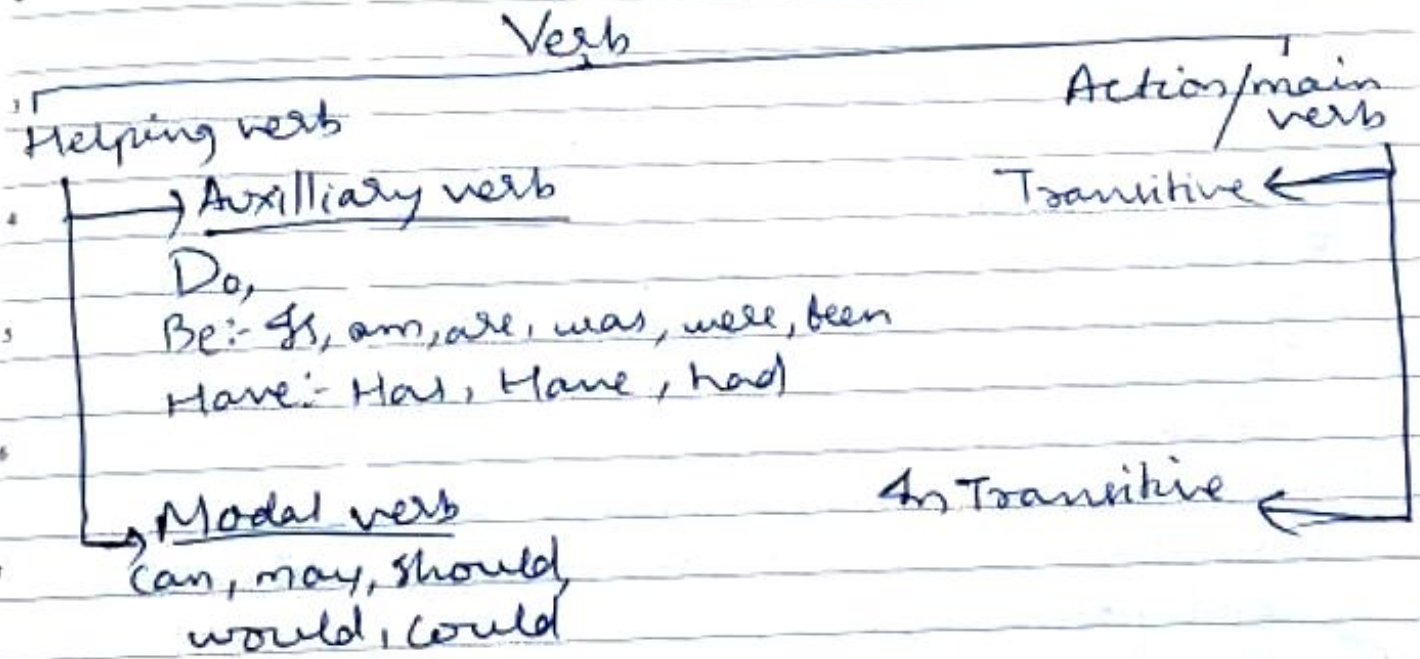 Verb
Helping verb
Action/main
verb
Auxilliary verb
Transitive
Do,
Be:- Is, am, are, was, were, been
Have:- Has, Have, had
Modal verb
In Transitive
can, may, should,
would, could